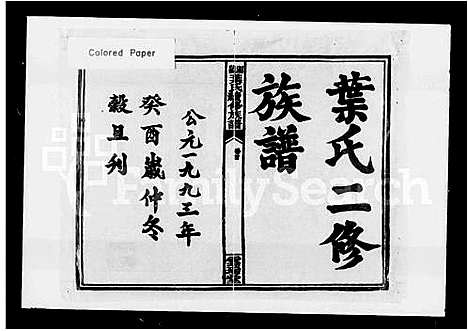 Colored Paper
葉氏二修
族譜
公元一九九三年
癸酉歲仲冬
穀旦刋
FamilySearch